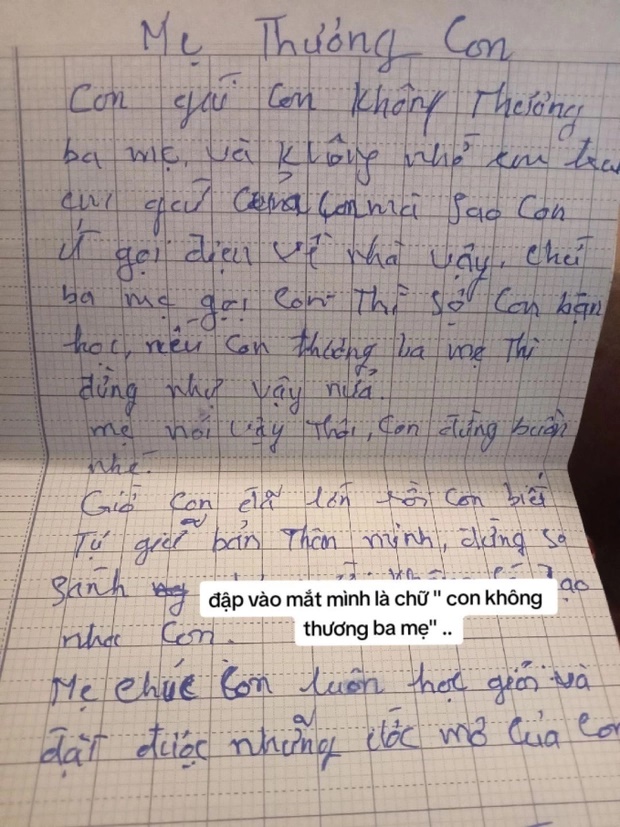 Mẹ Thương Con
Con gái Con không Thương
ba mẹ, và không nhớ em trai
em gái Của Con mà Sao Con
ít gọi điện về nhà vậy, chứ
ba mẹ gọi Con Thì Sợ Con bận
học, nếu Con thương ba mẹ Thì
đừng như vậy nữa.
mẹ nói vậy Thôi, Con đừng buồn
nhé.
Giờ Con đã lớn rồi Con biết
Tự giữ bản Thân mình, đừng so
Sánh
đập vào mắt mình là chữ " con không
thương ba mẹ" ..
Con.
Mẹ chúc Con luôn học giỏi và
đạt được những ước mơ Của Con